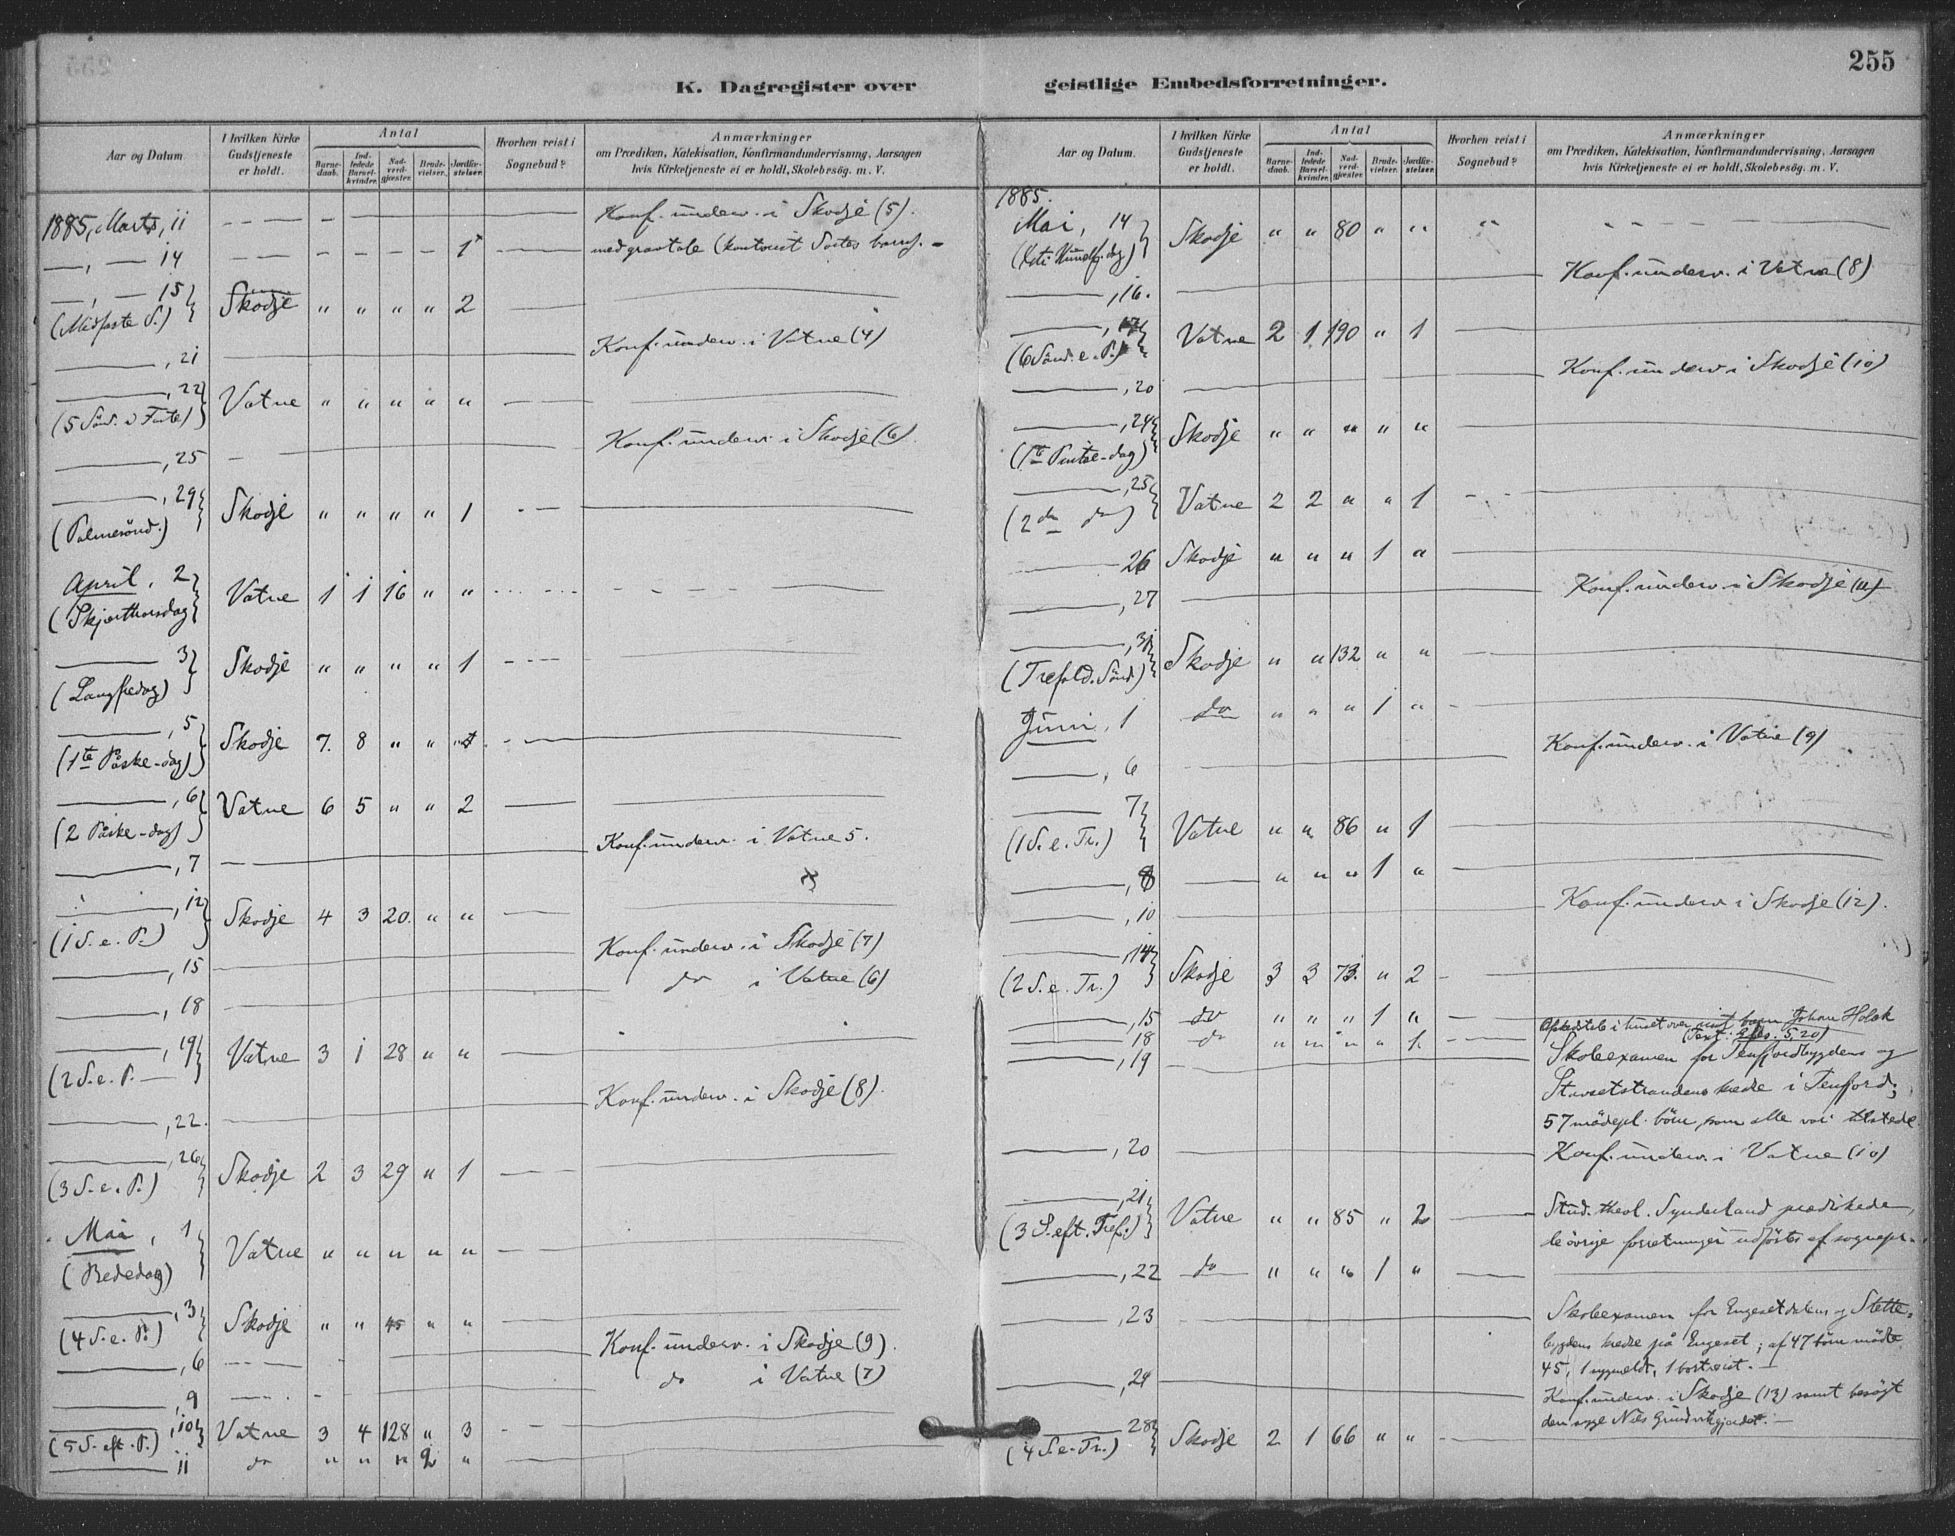 255
K. Dagregister over geistlige Embedsforretninger.
Aar og Datum
I hvilken Kirke Gudstjeneste er holdt.
Antal
Barnedaab. Indledede Barselkvinder. Nadverdgjæster. Brudevielser. Jordfæstelser.
Hvorhen reist i Sognebud?
Anmærkninger
om Prædiken, Katekisation, Konfirmandundervisning, Aarsagen
hvis Kirketjeneste ei er holdt, Skolebesøg. m. V.
1885, Marts, 11 — Konf. underv. i Skodje (5).
—, — 14 — 1 — med gravtale
—, — 15 (Midfaste S.) Skodje " " " " 2 —
—, 21 — Konf. underv. i Vatne (4)
—, 22 (5 Sönd. i Faste) Vatne " " " " " —
—, 25 — Konf. underv. i Skodje (6).
—, 29 (Palmesönd.) Skodje " " " " 1 —
April, 2 (Skjærthorsdag) Vatne 1 1 16 " " —
— 3 (Langfredag) Skodje " " " " 1 —
—, 5 (1te Påske-dag) Skodje 7. 8 " " —
—, 6 (2 Påske-dag) Vatne 6 5 " " 2 —
—, 7 — Konf. underv. i Vatne 5.
—, 12 (1 S. e. P.) Skodje 4 3 20. " " —
—, 15 — Konf. underv. i Skodje (7)
—, 18 — do i Vatne (6)
—, 19 (2 S. e. P. — Vatne 3 1 28 " " —
—, 22. — Konf. underv. i Skodje (8).
—, 26 (3 S. e. P.) Skodje 2 3 29 " 1 —
Mai, 1 (Bededag) Vatne " " " " " —
—, 3 (4 S. e. P.) Skodje " " 45 " " —
—, 6 — Konf. underv. i Skodje (9).
—, 9 — do i Vatne (7)
—, 10 (5 S. eft. P.) Vatne 3 4 128 " 3 —
— 11 do " " " 2 "
Aar og Datum.
I hvilken Kirke Gudstjeneste er holdt.
Antal
Barnedaab. Indledede Barselkvinder. Nadverdgjæster. Brudevielser. Jordfæstelser.
Hvorhen reist i Sognebud?
Anmærkninger
om Prædiken, Katekisation, Konfirmandundervisning, Aarsagen
hvis Kirketjeneste ei er holdt, Skolebesøg. m. V.
1885.
Mai, 14 Skodje " " 80 " " "
—, 16. — Konf. underv. i Vatne (8)
—, 17 (6 Sönd. e. P.) Vatne 2 1 190 " 1 —
—, 20 — Konf. underv. i Skodje (10)
—, 24 (1te Pintse-dag) Skodje " " " " " —
—, 25 (2den do) Vatne 2 2 " " 1 —
— 26 Skodje " " " 1 " —
—, 27 — Konf. underv. i Skodje (11)
—, 31 (Trefold. Sönd.) Skodje " " 132 " " —
Juni, 1 do " " " 1 " —
—, 6 — Konf. underv. i Vatne (9)
— 7 (1 S. e. Tr.) Vatne " " 86 " 1 —
—, 8 — " " " 1 " —
—, 10 — Konf. underv. i Skodje (12).
—, 14 (2 S. e. Tr.) Skodje 3 3 73. " 2 —
—, 15 do " " " 1 " —
— 18 do " " " " 1. — i huset over mit barn Johan Holck
—, 19 — Skoleexamen for Tenfjordbygdens og
kreds i Tenfjord;
57 mødepl. börn, som alle var tilstede.
—, 20 — Konf. underv. i Vatne (10)
—, 21 (3 S. eft. Tref.) Vatne " " 85 " 2 — Stud. theol. Synderland prædikede,
de övrige forretninger udförtes af sognepr.
—, 22 do " " " 1 " —
—, 23 Skoleexamen for Engesetdalens og Stette-
bygdens kreds på Engeset; af 47 börn mödte
45, 1 sygmeldt, 1 bortreist. —
—, 24 — Konf. underv. i Skodje (13) samt besøgt
den syge Nils
— 28 (4 S. e. Tr.) Skodje 2 1 66 " " —